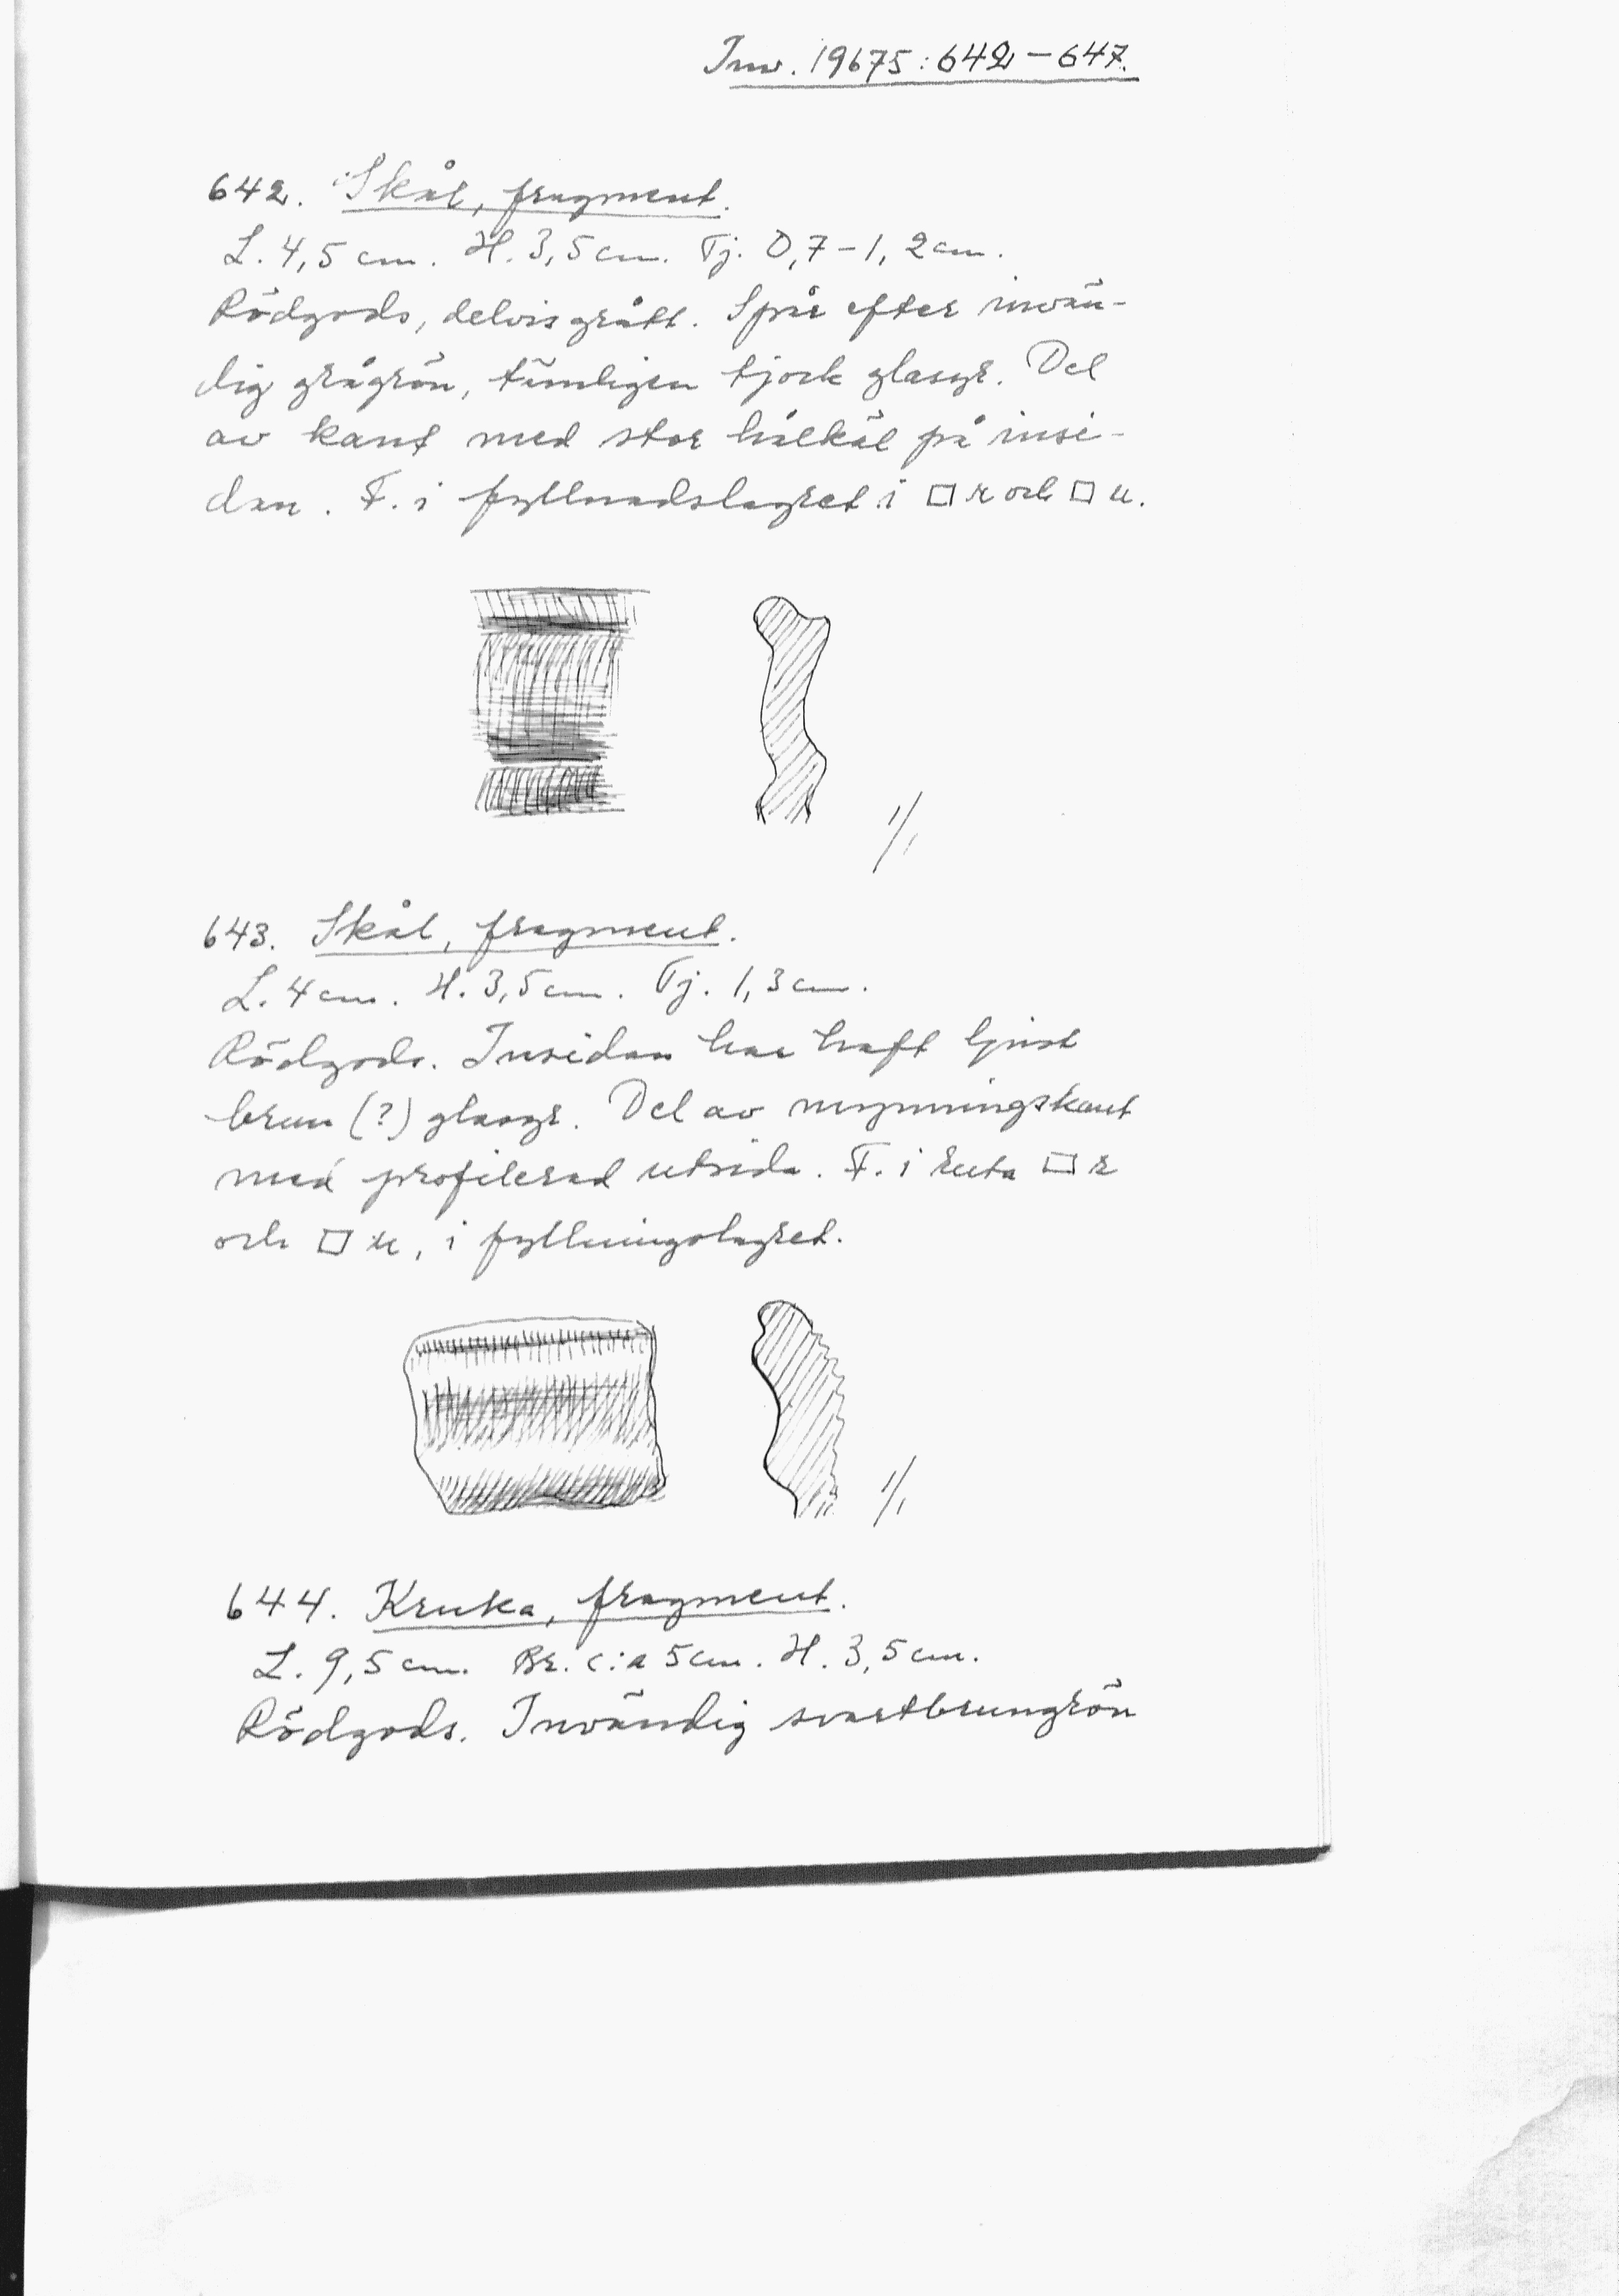 Inv. 19675:642–647.
642. Skål, fragment.
L. 4,5 cm. H. 3,5 cm. Tj. 0,7–1,2 cm.
Rödgods, delvis grått. Spår efter invän-
dig grågrön, tämligen tjock glasyr. Del
av kant med stor hålkäl på insi-
dan. F. i fyllnadslagret i □ r och □ u.
1/1
643. Skål, fragment.
L. 4 cm. H. 3,5 cm. Tj. 1,3 cm.
Rödgods. Insidan har haft ljust
brun (?) glasyr. Del av mynningskant
med profilerad utsida. F. i ruta □ r
och □ u, i fyllningslagret.
1/1
644. Kruka, fragment.
L. 9,5 cm. Br. c:a 5 cm. H. 3,5 cm.
Rödgods. Invändig svartbrungrön